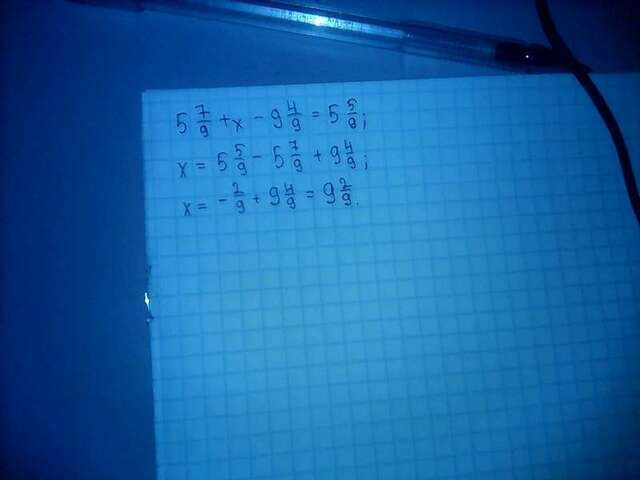 5 7/9 + x - 9 4/9 = 5 5/9;
x = 5 5/9 - 5 7/9 + 9 4/9;
x = - 2/9 + 9 4/9 = 9 2/9.